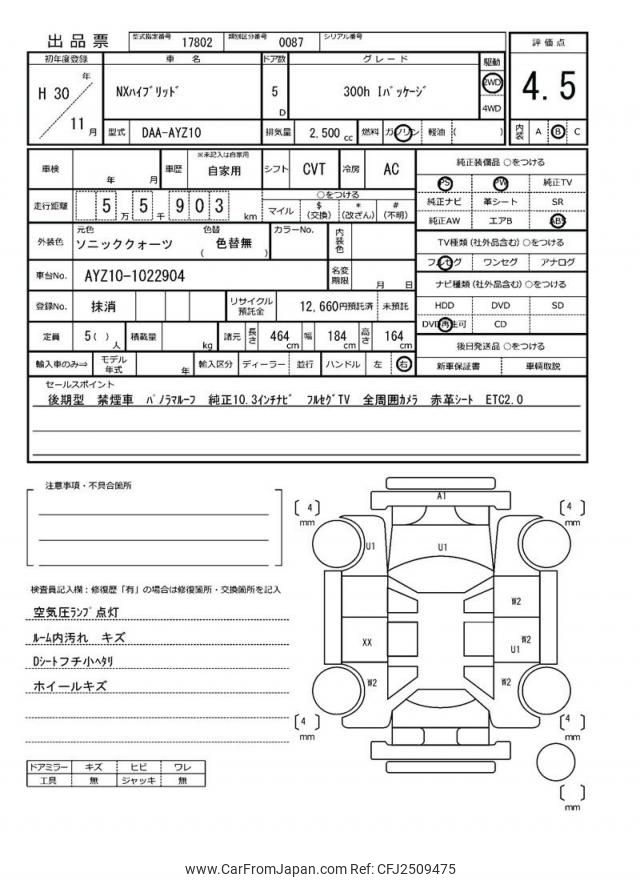 出品票
型式指定番号 17802 類別区分番号 0087 シリアル番号
初年度登録 車名 ドア数 グレード 駆動 評価点
H 30 年 11 月
NXﾊｲﾌﾞﾘｯﾄﾞ 5 D 300h Iﾊﾟｯｹｰｼﾞ 2WD 4WD 4.5
型式 DAA-AYZ10 排気量 2,500 cc 燃料 ガソリン 軽油 ( ) 内装 A B C
車検 年 月 車歴 ※未記入は自家用 自家用 シフト CVT 冷房 AC
走行距離 5 万 5 千 9 0 3 km
○をつける
マイル $(交換) *(改ざん) #(不明)
外装色 元色 ソニッククォーツ 色替 ( 色替無 ) カラーNo. 内装色
車台No. AYZ10-1022904 名変期限 月 日
登録No. 抹消 リサイクル預託金 12,660円預託済 未預託
定員 5( ) 人 積載量 kg 諸元 長さ 464 cm 幅 184 cm 高さ 164 cm
輸入車のみ⇒ モデル年式 年 輸入区分 ディーラー 並行 ハンドル 左 右
純正装備品 ○をつける
PS PW 純正TV
純正ナビ 革シート SR
純正AW エアB ABS
TV種類 (社外品含む) ○をつける
フルセグ ワンセグ アナログ
ナビ種類 (社外品含む) ○をつける
HDD DVD SD
DVD再生可 CD
後日発送品 ○をつける
新車保証書 車輌取説
セールスポイント
後期型 禁煙車 ﾊﾟﾉﾗﾏﾙｰﾌ 純正10.3ｲﾝﾁﾅﾋﾞ ﾌﾙｾｸﾞTV 全周囲ｶﾒﾗ 赤革ｼｰﾄ ETC2.0
注意事項・不具合箇所
検査員記入欄：修復歴「有」の場合は修復箇所・交換箇所を記入
空気圧ﾗﾝﾌﾟ点灯
ﾙｰﾑ内汚れ キズ
Dｼｰﾄフチ小ﾍﾀﾘ
ホイールキズ
ドアミラー キズ ヒビ ワレ
工具 無 ジャッキ 無
[ 4 ] mm
A1
[ 4 ] mm
U1
U1
W2
XX
W2
U1
W2
W2
[ 4 ] mm
[ 4 ] mm
[ ] mm
www.CarFromJapan.com Ref: CFJ2509475